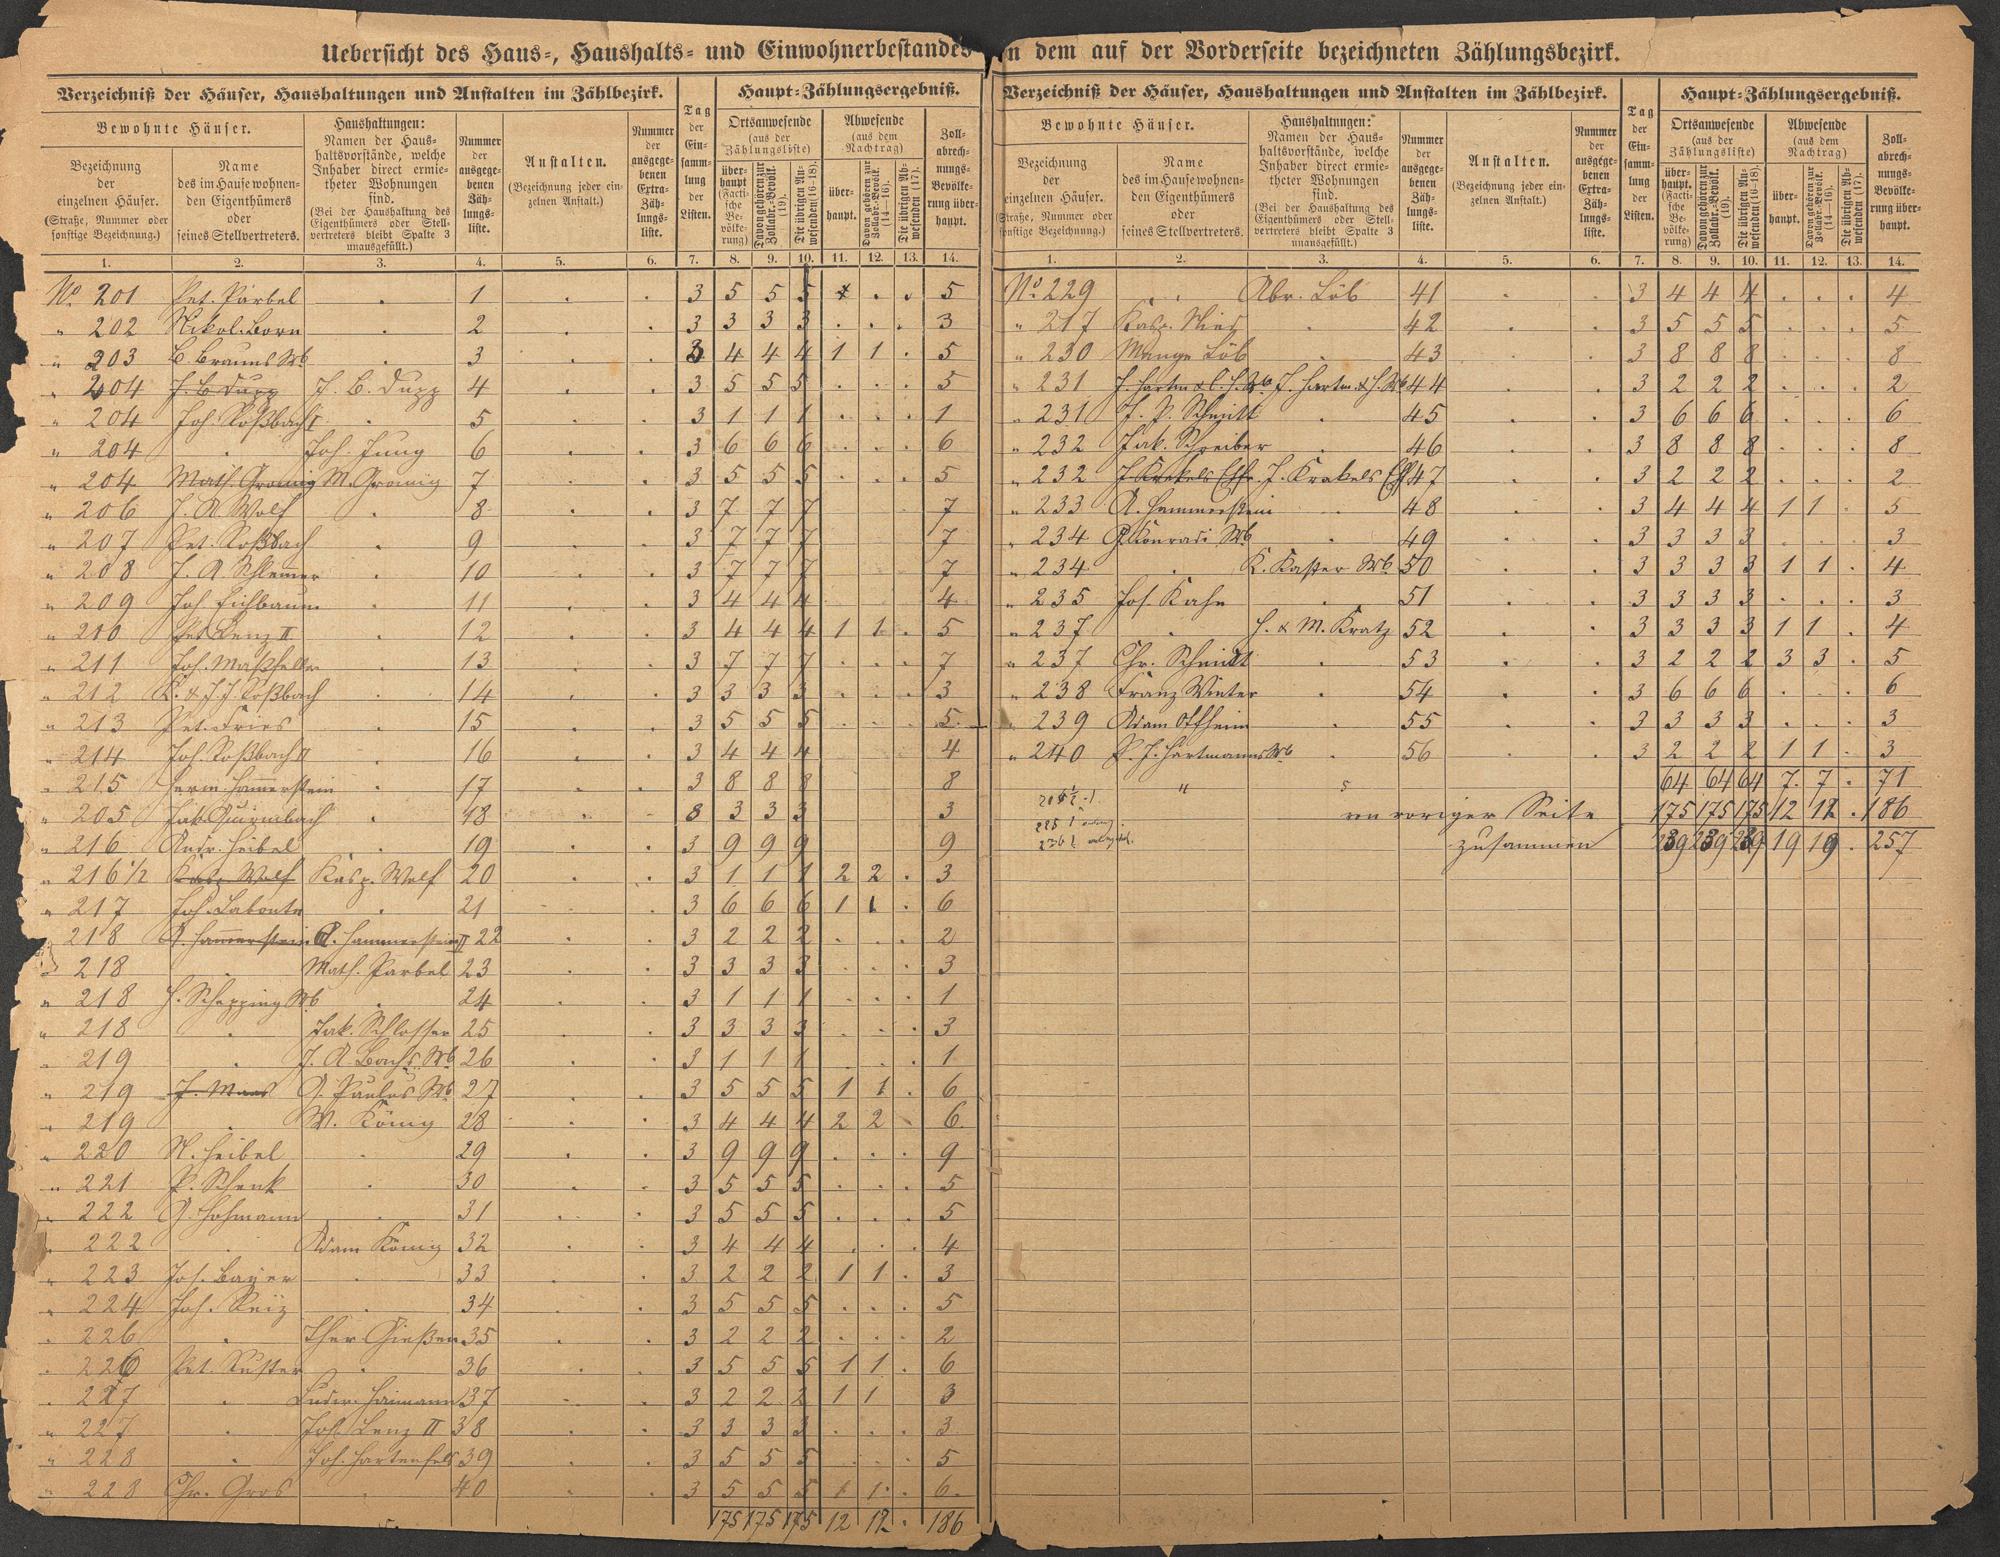 Uebersicht des Haus-, Haushalts- und Einwohnerbestandes in dem auf der Vorderseite bezeichneten Zählungsbezirk.
Verzeichniß der Häuser, Haushaltungen und Anstalten im Zählbezirk.
Tag der Einsammlung der Listen.
Haupt-Zählungsergebniß.
Bewohnte Häuser.
Bezeichnung der einzelnen Häuser. (Straße, Nummer oder sonstige Bezeichnung.)
Name des im Hause wohnenden Eigenthümers oder seines Stellvertreters.
Haushaltungen: Namen der Haushaltsvorstände, welche Inhaber direct ermietheter Wohnungen sind. (Bei der Haushaltung des Eigenthümers oder Stellvertreters bleibt Spalte 3 unausgefüllt.)
Nummer der ausgegebenen Zählungsliste.
Anstalten. (Bezeichnung jeder einzelnen Anstalt.)
Nummer der ausgegebenen Extra-Zählungsliste.
Ortsanwesende (aus der Zählungsliste)
überhaupt (Factische Bevölkerung)
Davon gehören zur Zollabr.-Bevölk. (19).
Die übrigen Anwesenden (16-18).
Abwesende (aus dem Nachtrag)
überhaupt.
Davon gehören zur Zollabr.-Bevölk. (14-16).
Die übrigen Abwesenden (17).
Zollabrechnungs-Bevölkerung überhaupt.
1. 2. 3. 4. 5. 6. 7. 8. 9. 10. 11. 12. 13. 14.
No. 201 Pet. Parbel . 1 . . 3 5 5 5 . . 5
" 202 Nikol. Born . 2 . . 3 3 3 3 . . . 3
" 203 B. Brauns Wb. 3 . . 3 4 4 4 1 1 . 5
" 204 J. B. Dupp J. B. Dupp 4 . . 3 5 5 5 . . . 5
" 204 Joh. Roßbach I . 5 . . 3 1 1 1 . . . 1
" 204 . Joh. Jung 6 . . 3 6 6 6 . . . 6
" 204 Math. Gromig M. Gromig 7 . . 3 5 5 5 . . . 5
" 206 J. A. Wolf . 8 . . 3 7 7 7 7
" 207 Pet. Roßbach . 9 . . 3 7 7 7 7
" 208 J. A. Schlemmer . 10 . . 3 7 7 7 7
" 209 Joh. Eichbaum . 11 . . 3 4 4 4 4
" 210 Pet. Lenz II . 12 . . 3 4 4 4 1 1 . 5
" 211 Joh. . 13 . . 3 7 7 7 . . . 7
" 212 K. & J. J. Roßbach . 14 . . 3 3 3 3 . . . 3
" 213 Pet. Fries . 15 . . 3 5 5 5 . . . 5
" 214 Joh. Roßbach II . 16 . . 3 4 4 4 4
" 215 Herm. Hammerstein . 17 . . 3 8 8 8 8
" 205 Jak. Quirmbach . 18 . . 3 3 3 3
" 216 Andr. Heibel . 19 . . 3 9 9 9 9
" 216 1/2 Kasp. Wolf Kasp. Wolf 20 . . 3 1 1 1 2 2 . 3
" 217 Joh. Labonte . 21 . . 3 6 6 6 1 1 . 6
" 218 Hammerstein Hammerstein II 22 . . 3 2 2 2 . . . 2
" 218 . Math. Parbel 23 . . 3 3 3 3 . . . 3
" 218 H. Schepping Wb. . 24 . . 3 1 1 1 . . . 1
" 218 . Jak. Schlosser 25 . . 3 3 3 3 . . . 3
" 219 . J. A. Bachs Wb. 26 . . 3 1 1 1 . . . 1
" 219 J. Maas Paulus Wb. 27 . . 3 5 5 5 1 1 . 6
" 219 . W. König 28 . . 3 4 4 4 2 2 . 6
" 220 N. Heibel . 29 . . 3 9 9 9 . . . 9
" 221 P. Schenk . 30 . . 3 5 5 5 . . . 5
" 222 Hofmann . 31 . . 3 5 5 5 . . . 5
" 222 . Adam König 32 . . 3 4 4 4 . . . 4
" 223 Joh. Bayer . 33 . . 3 2 2 2 1 1 . 3
" 224 Joh. Reiz . 34 3 5 5 5 . . . 5
" 226 . Ther. Gießen 35 . . 3 2 2 2 . . . 2
" 226 Pet. Kuster . 36 . . 3 5 5 5 1 1 . 6
" 227 . Ludw. Haimann 37 . . 3 2 2 2 1 1 3
" 227 . Joh. Lenz II 38 . . 3 3 3 3 . . . 3
" 228 . Joh. Hartenfels 39 . . 3 5 5 5 . . . 5
" 228 Chr. Gros . 40 . . 3 5 5 5 1 1 . 6
175 175 175 12 12 . 186
Verzeichniß der Häuser, Haushaltungen und Anstalten im Zählbezirk.
Tag der Einsammlung der Listen.
Haupt-Zählungsergebniß.
Bewohnte Häuser.
Bezeichnung der einzelnen Häuser. (Straße, Nummer oder sonstige Bezeichnung.)
Name des im Hause wohnenden Eigenthümers oder seines Stellvertreters.
Haushaltungen: Namen der Haushaltsvorstände, welche Inhaber direct ermietheter Wohnungen sind. (Bei der Haushaltung des Eigenthümers oder Stellvertreters bleibt Spalte 3 unausgefüllt.)
Nummer der ausgegebenen Zählungsliste.
Anstalten. (Bezeichnung jeder einzelnen Anstalt.)
Nummer der ausgegebenen Extra-Zählungsliste.
Ortsanwesende (aus der Zählungsliste)
überhaupt. (Factische Bevölkerung)
Davon gehören zur Zollabr.-Bevölk. (19).
Die übrigen Anwesenden (16-18).
Abwesende (aus dem Nachtrag)
überhaupt.
Davon gehören zur Zollabr.-Bevölk. (14-16).
Die übrigen Abwesenden (17).
Zollabrechnungs-Bevölkerung überhaupt.
1. 2. 3. 4. 5. 6. 7. 8. 9. 10. 11. 12. 13. 14.
No. 229 . Abr. Löb 41 . . 3 4 4 4 . . . 4
" 217 Kasp. Nies . 42 . . 3 5 5 5 . . . 5
" 230 Mange Löb . 43 . . 3 8 8 8 . . . 8
" 231 J. Hartm. Wb. J. Hartm. Wb. 44 . . 3 2 2 2 . . . 2
" 231 J. P. Schmitt . 45 . . 3 6 6 6 . . . 6
" 232 Jak. Schreiber . 46 . . 3 8 8 8 . . . 8
" 232 J. Krakels J. Krakels 47 . . 3 2 2 2 . . . 2
" 233 A. Hammerstein . 48 . . 3 4 4 4 1 1 . 5
" 234 Konradi Wb. . 49 . . 3 3 3 3 . . . 3
" 234 . K. Kaster Wb. 50 . . 3 3 3 3 1 1 . 4
" 235 Jos. Kahn . 51 . . 3 3 3 3 . . . 3
" 237 . H. & M. Kratz 52 . . 3 3 3 3 1 1 . 4
" 237 Chr. Schmidt . 53 . . 3 2 2 2 3 3 . 5
" 238 Franz Winter . 54 . . 3 6 6 6 . . . 6
" 239 Adam Offheim . 55 . . 3 3 3 3 . . . 3
" 240 P. J. Hartmanns Wb. . 56 . . 3 2 2 2 1 1 . 3
64 64 64 7 7 . 71
von voriger Seite 175 175 175 12 12 . 186
zusammen 239 239 239 19 19 . 257